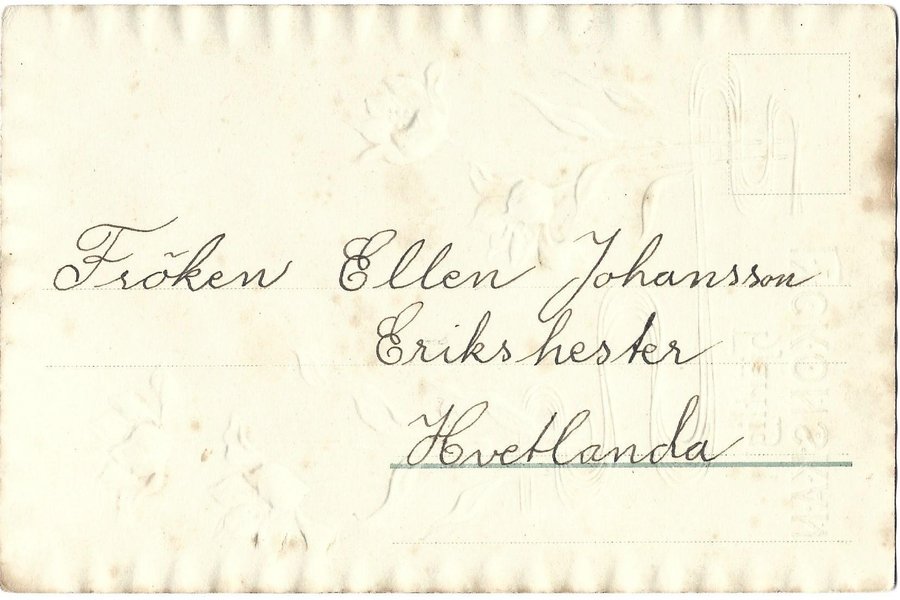 Fröken Ellen Johansson
Erikshester
Hvetlanda